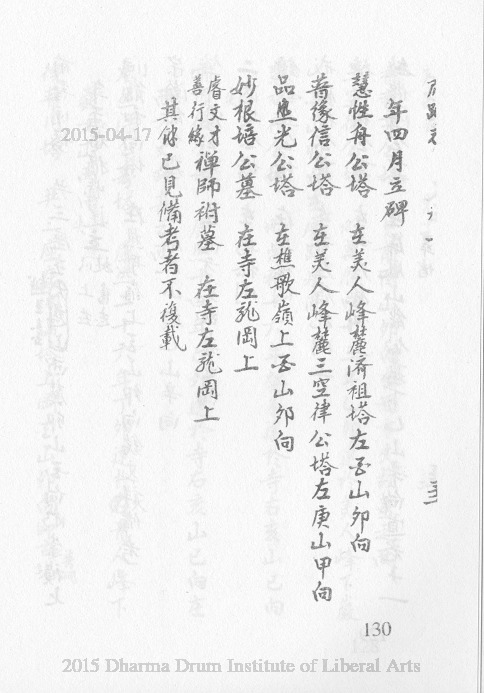 年四月立碑
慧性舟公塔　在美人峰麓济祖塔左酉山卯向
普像信公塔　在美人峰麓三空律公塔左庚山甲向
品照光公塔　在樵歌嶺上酉山卯向
妙根培公墓　在寺左龍岡上
睿文才善行緣禪師祔墓　在寺左龍岡上
其餘已見備考者不復載
130
2015-04-17
2015 Dharma Drum Institute of Liberal Arts